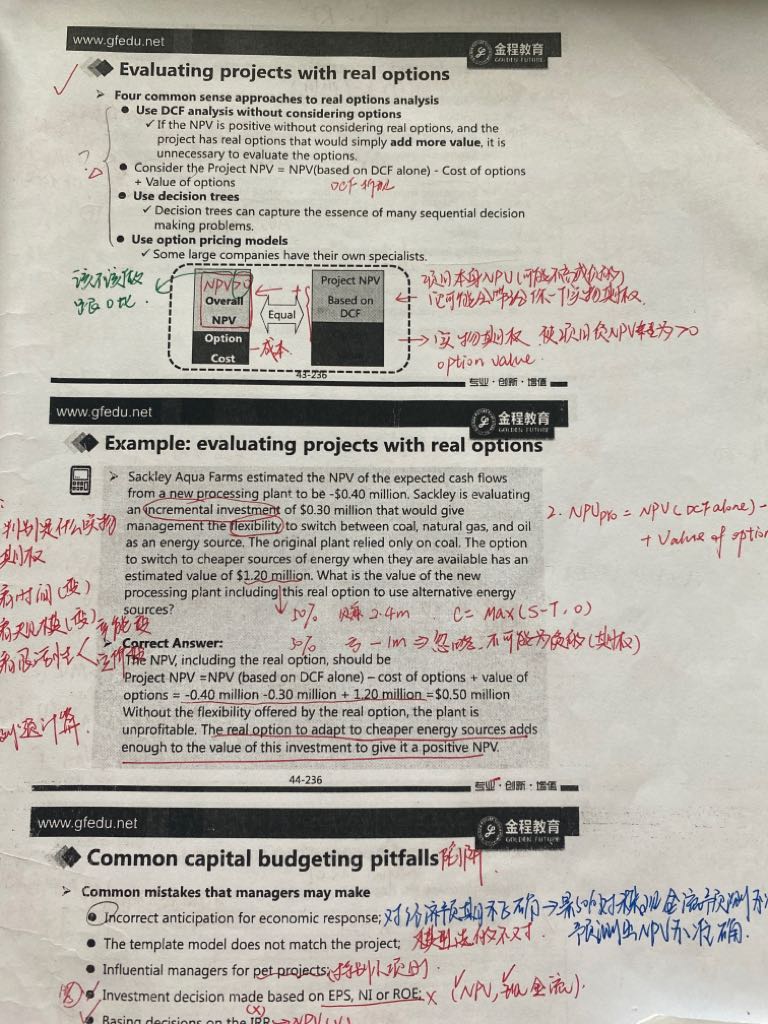 www.gfedu.net
金程教育
GOLDEN FUTURE
Evaluating projects with real options
➢ Four common sense approaches to real options analysis
● Use DCF analysis without considering options
✓ If the NPV is positive without considering real options, and the
project has real options that would simply add more value, it is
unnecessary to evaluate the options.
● Consider the Project NPV = NPV(based on DCF alone) - Cost of options
+ Value of options
DCF
● Use decision trees
✓ Decision trees can capture the essence of many sequential decision
making problems.
● Use option pricing models
✓ Some large companies have their own specialists.
该不该做
跟0比.
NPV>0
Overall
NPV
Option
Cost
成本
Equal
Project NPV
Based on
DCF
项目本身NPV
实物期权
option value.
43-236
专业·创新·增值
www.gfedu.net
金程教育
GOLDEN FUTURE
Example: evaluating projects with real options
➢ Sackley Aqua Farms estimated the NPV of the expected cash flows
from a new processing plant to be -$0.40 million. Sackley is evaluating
an incremental investment of $0.30 million that would give
management the flexibility to switch between coal, natural gas, and oil
as an energy source. The original plant relied only on coal. The option
to switch to cheaper sources of energy when they are available has an
estimated value of $1.20 million. What is the value of the new
processing plant including this real option to use alternative energy
sources?
判别是什么实物
期权
看时间(变)
2. NPVpro = NPV(DCF alone) -
+ Value of option
50% 赚 2.4m C= Max(S-T, 0)
50% 亏 -1m ⇒ 忽略. 不可能为负的(期权)
➢ Correct Answer:
The NPV, including the real option, should be
Project NPV =NPV (based on DCF alone) – cost of options + value of
options = -0.40 million -0.30 million + 1.20 million =$0.50 million
Without the flexibility offered by the real option, the plant is
unprofitable. The real option to adapt to cheaper energy sources adds
enough to the value of this investment to give it a positive NPV.
计算.
44-236
专业·创新·增值
www.gfedu.net
金程教育
GOLDEN FUTURE
Common capital budgeting pitfalls 陷阱
➢ Common mistakes that managers may make
● Incorrect anticipation for economic response; 对经济预期不正确→
预测出NPV不准确.
● The template model does not match the project; 模型选的不对.
● Influential managers for pet projects; 特别小项目.
● Investment decision made based on EPS, NI or ROE; × (NPV, 现金流).
(×)
Basing decisions on the IRR →NPV(√)